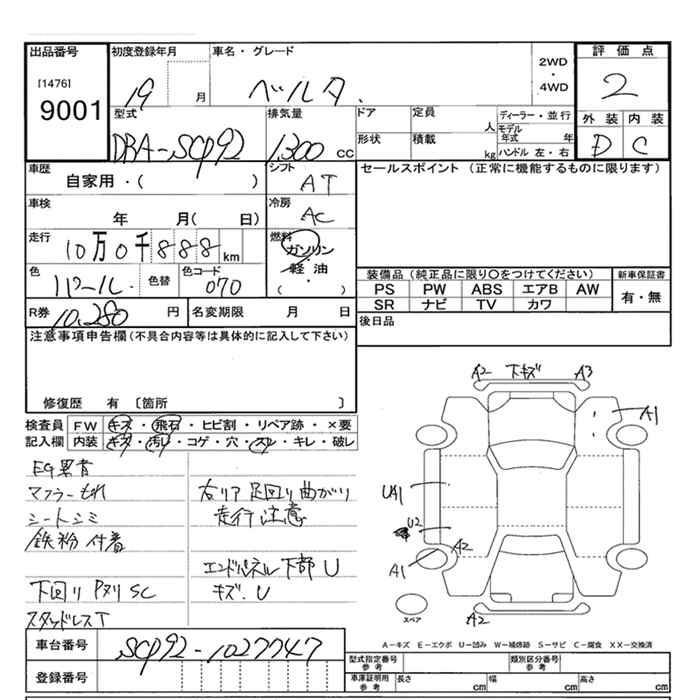 出品番号
[1476]
9001
初度登録年月
19 月
車名・グレード
ベルタ
2WD
・
4WD
評価点
2
外装 内装
D C
型式
DBA-SCP92
排気量
1300 CC
ドア
定員
人
形状
積載
kg
ディーラー・並行
モデル年式 年
ハンドル 左・右
車歴
自家用・( )
シフト
AT
セールスポイント (正常に機能するものに限ります)
車検
年 月( 日)
冷房
AC
走行
10万0千888km
燃料
ガソリン
・
軽油
( )
色
パール
色替
色コード
070
装備品 (純正品に限り〇をつけてください)
新車保証書
PS PW ABS エアB AW
SR ナビ TV カワ
有・無
R券 10,280 円
名変期限 月 日
後日品
注意事項申告欄(不具合内容等は具体的に記入して下さい)
修復歴 有 〔箇所 〕
検査員
記入欄
FW キズ・飛石・ヒビ割・リペア跡・×要
内装 キズ・汚れ・コゲ・穴・スレ・キレ・破レ
EG異音
マフラーもれ
シートシミ
鉄粉付着
下回りPヌリSC
スタッドレスT
右リア足回り曲がり
走行注意
エンドパネル下部U
キズ.U
A2 下キズ A3
A1
UA1
U2
A2
A1
スペア
A2
A-キズ E-エクボ U-凹み W-補修跡 S-サビ C-腐食 XX-交換済
車台番号
SCP92-1027747
登録番号
型式指定番号
参考
類別区分番号
参考
車庫証明用
参考
長さ cm
幅 cm
高さ cm